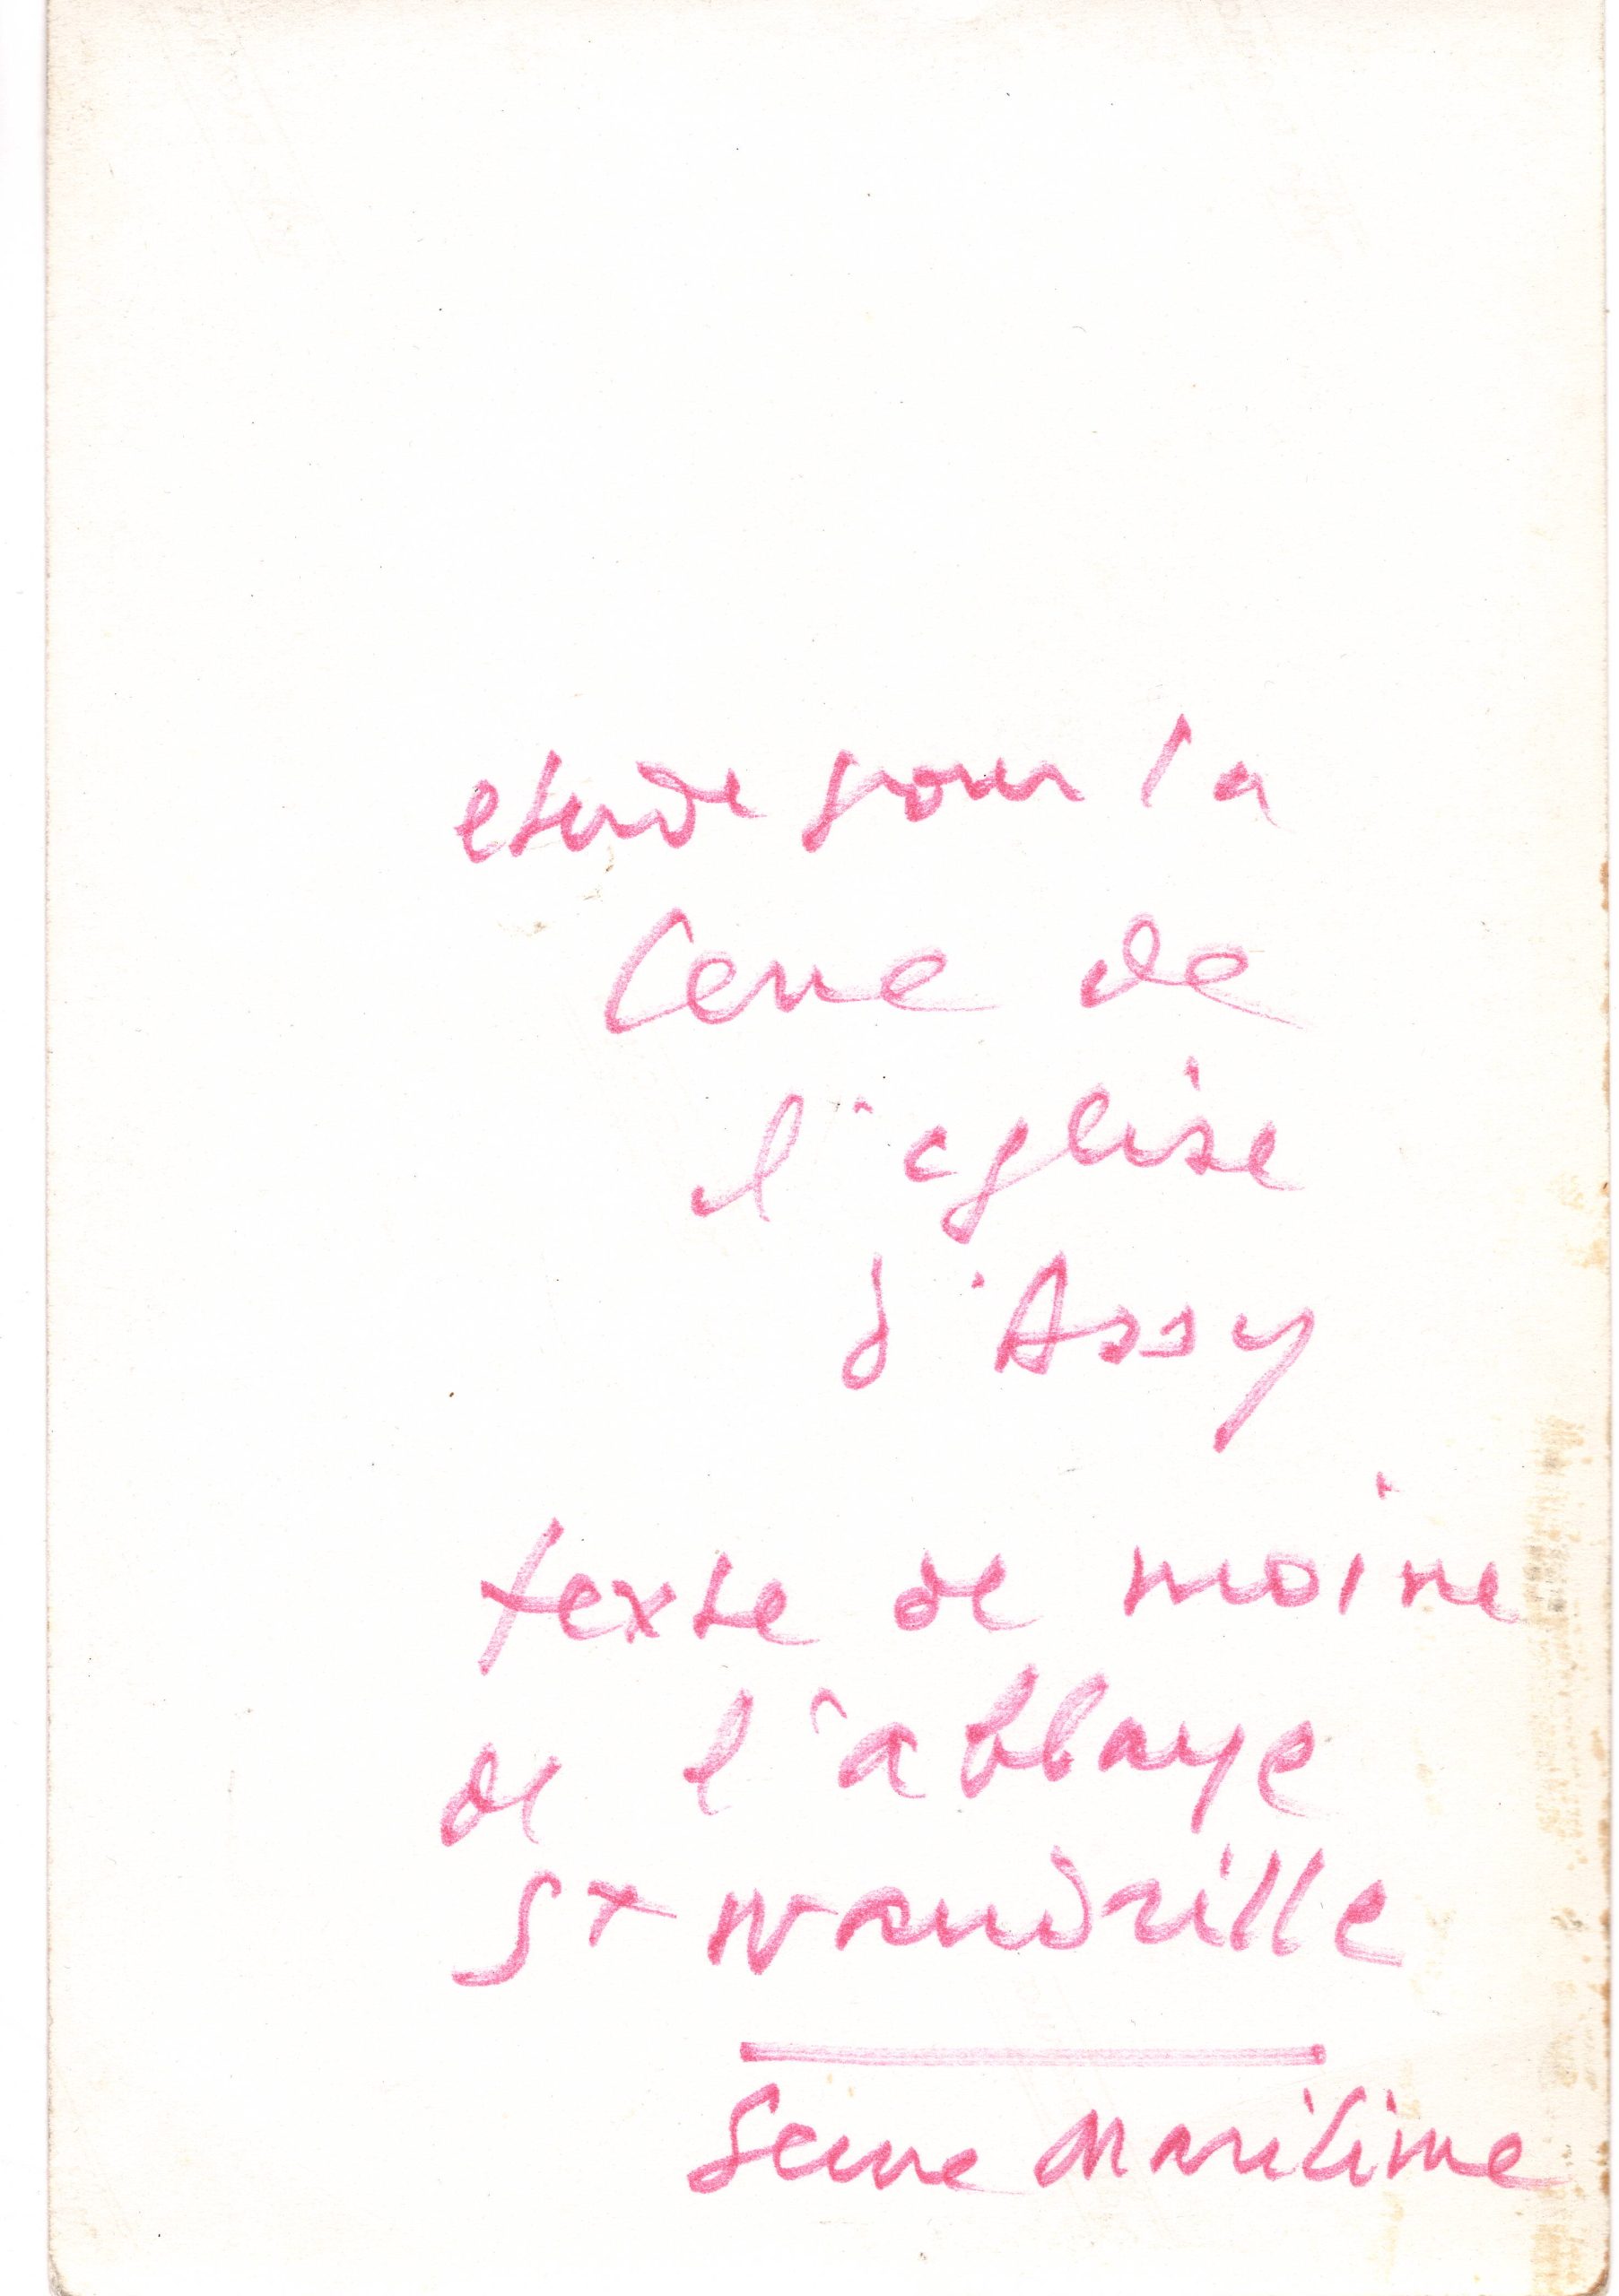 etude pour la
Cene de
l'eglise
d'Assy
texte de moine
de l'abbaye
St Wandrille
Seine Maritime